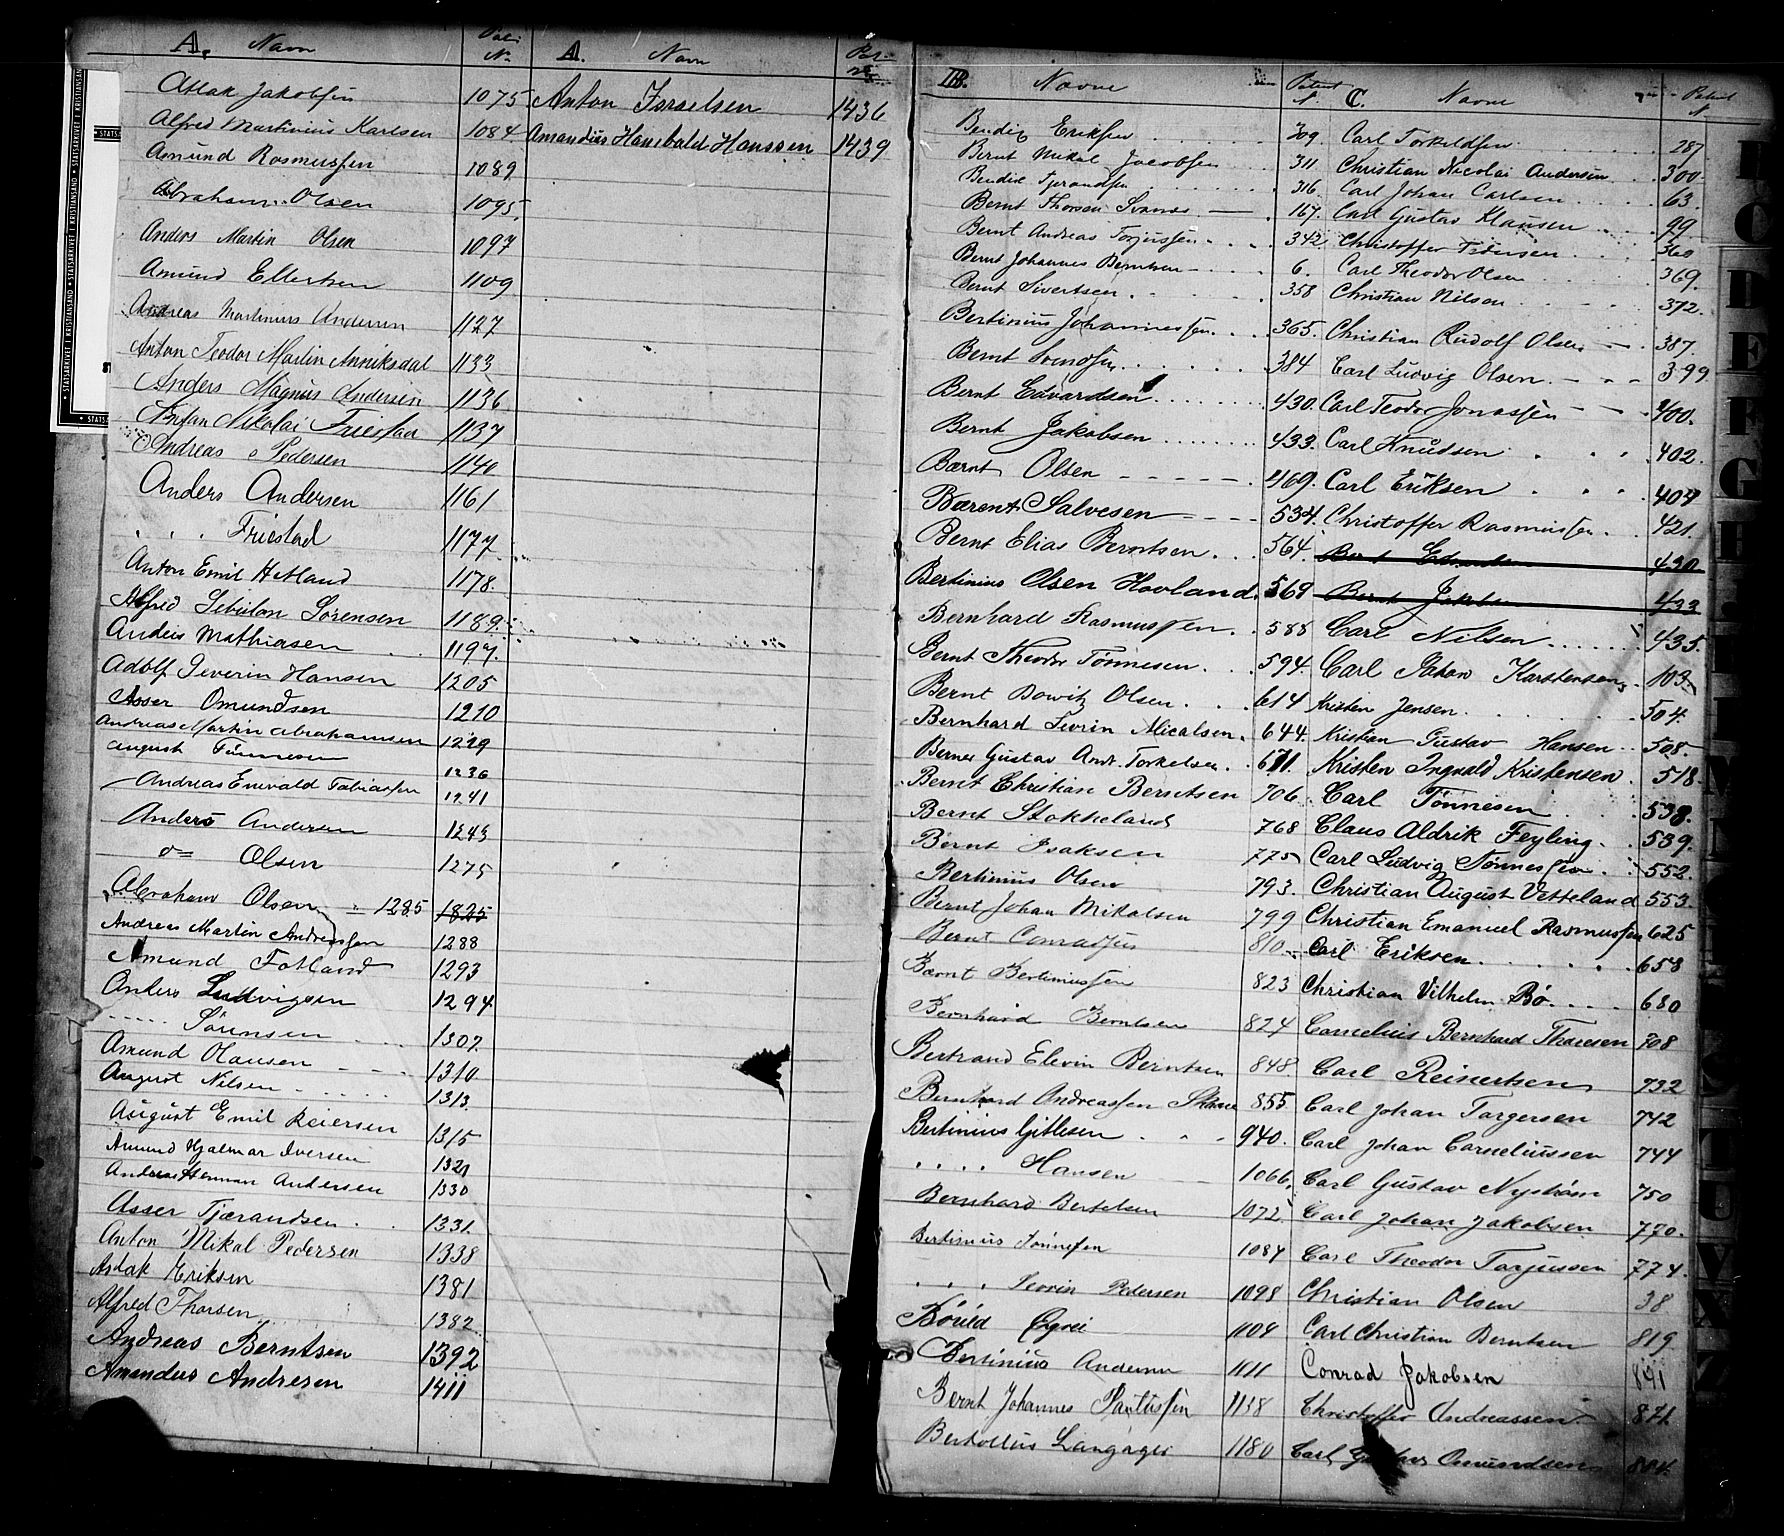 A. Navn
Aslak Jakobsen 1075
Alfred Martinius Karlsen 1084
Amund Rasmussen 1089
Abraham Olsen 1095
Anders Martin Olsen 1097
Amund Ellertsen 1109
Andreas Martinius Andersen 1127
Anton Teodor Martin Anniksdal 1133
Anders Magnus Andersen 1136
Nikolai Friestad 1137
Andreas Pedersen 1140
Anders Andersen 1161
" " Friestad 1177
Anton Emil Hetland 1178.
Alfred Sebulon Sørensen 1189
Anders Mathiasen 1197.
Adolf Severin Hansen 1205
Asser Omundsen 1210
Andreas Martin Abrahamsen 1229
August Tønnesen 1236
Andreas Enevald Tobiassen 1241
Anders Andersen 1243
do Olsen 1275
Abraham Olsen = 1285 1825
Andreas Martin Andreassen 1288
Amund Fotland 1293
Anders Ludvigsen 1294
- - - - - Sørensen 1307.
Amund Olausen 1310
August Nilsen 1313
August Emil Reiersen 1315
Amund Hjalmar Iversen 1321
Andreas Herman Andersen 1330
Asser Tjærandsen 1331
Anton Mikal Pedersen 1338
Aslak Eriksen 1381
Alfred Thorsen 1382
Andreas Berntsen 1392
Amandus Andresen 1411
A. Navn
Anton Isaelsen 1436
Amandus Hanibald Hanssen 1439
B. Navne Patent N.
Bendix Eriksen 309
Bernt Mikal Jacobsen 311
Bendix Tjerandsen 316
Bernt Thorsen Svanes 167.
Bernt Andreas Torjussen 342
Bernt Johannes Berntsen 6.
Bernt Sivertsen 358
Bertinius Johannessen 365.
Bernt Svendsen 384
Bernt Edvardsen 430.
Bernt Jakobsen 433.
Bærnt Olsen 469.
Bærent Salvesen 534.
Bernt Elias Berntsen 564.
Bertinius Olsen Hovland 569
Bernhard Rasmussen 588
Bernt Theodor Tønnesen 594.
Bernt Dowitz Olsen 614
Bernhard Sevrin Micalsen 644.
Berner Gustav Andr. Torkelsen 671.
Bernt Christian Berntsen 706
Bernt Stokkeland 768
Bernt Isaksen 775
Bertinius Olsen 793.
Bernt Johan Mikalsen 799
Bernt Conradsen 810
Bærnt Bertinussen 823
Bernhard Berntsen 824
Bertrand Elevin Berntsen 848
Bernhard Andreassen Skaue 855.
Bertinius Gitlesen 940.
. . . . Hansen 1066.
Bernhard Bertelsen 1072.
Bertinius Tønnesen 1084
. . . Sevrin Pedersen 1098
Børild 1104
Bertinius Andersen 1111
Bernt Johannes Paulussen 1138
Bertollus Langager 1180
C. Navne Patent N
Carl Torkeldsen 287
Christian Nicolai Andersen 300
Carl Johan Carlsen 63.
Carl Gustav Klausen 99
Christoffer Pedersen 360
Carl Theodor Olsen 369.
Christian Nilsen 372.
Christian Rudolf Olsen 387.
Carl Ludvig Olsen 399
Carl Teodor Jonassen 400.
Carl Knudsen 402.
Carl Eriksen 404
Christoffer Rasmussen 421.
Bernt Edvardsen 430
Bernt Jakobsen 433
Carl Nilsen 435.
Carl Johan Karstensen 103.
Kristen Jensen 504.
Kristian Gustav Hansen 508
Kristen Ingvald Kristensen 518
Carl Tønnesen 538.
Claus Aldrik Feyling 539.
Carl Ludvig Tønnessen 552.
Christian August Vetteland 553
Christian Emanuel Rasmussen 625
Carl Eriksen 658
Christian Vilhelm Bø 680
Cornelius Bernhard Thorsen 708
Carl Reinertsen 732
Carl Johan Torgersen 742
Carl Johan Corneliussen 744
Carl Gustav Nystrøm 750
Carl Johan Jakobsen 770.
Carl Theodor Torjussen 774.
Christian Olsen 38
Carl Christian Berntsen 819
Conrad Jakobsen 841
Christoffer Andreassen 871
Carl Omundsen 804.
STATSARKIVET I KRISTIANSAND
D E F G H